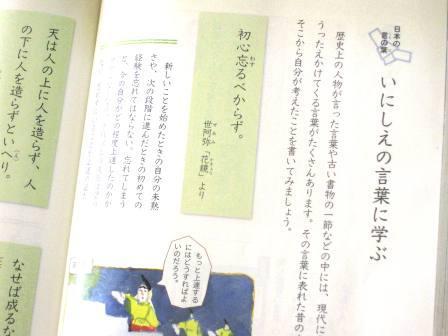 日本の
言の葉
いにしえの言葉に学ぶ
歴史上の人物が言った言葉や古い書物の一節などの中には、現代に
うったえかけてくる言葉がたくさんあります。その言葉に表れた昔の
そこから自分が考えたことを書いてみましょう。
初心忘るべからず。
わす
世阿弥「花鏡」より
ぜあみ
かきょう
新しいことを始めたときの自分の未熟
さや、次の段階に進んだときの初めての
経験を忘れてはならない。忘れてしまう
と、今の自分がどの程度上達したのかが
もっと上達する
にはどうすればよ
いのだろう。
天は人の上に人を造らず、人
の下に人を造らずといへり。
なせば成る